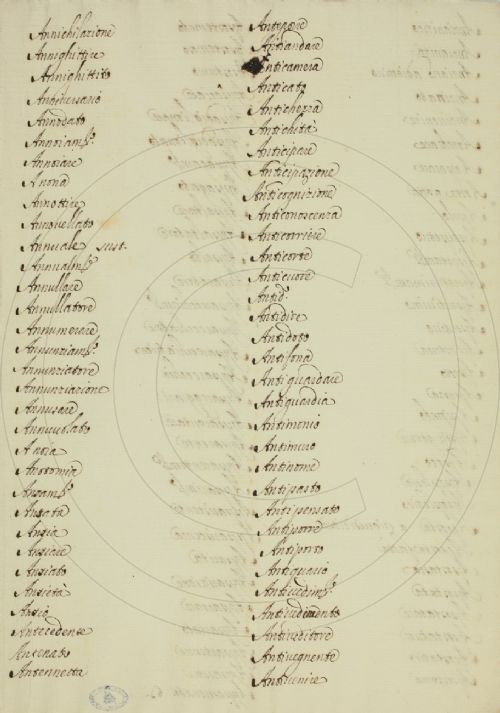 Annichilazione
Annighittire
Annighittito
Anniversario
Annodato
Annoiam.
Annoiare
Anona
Annottire
Annovellato
Annuale sust.
Annualm.
Annullare
Annullatore
Annumerare
Annunziam.
Annunziatore
Annunziazione
Annusare
Annuvolato
Anotomia
Ansam.
Ansata
Ansia
Ansiare
Ansiato
Ansietà
Ansio
Antecedense
Antenato
Antennetta
Anteporre
Antiandare
Anticamera
Anticato
Antichezza
Antichità
Anticipare
Anticipazione
Anticognizione
Anticonoscenza
Anticorriere
Anticorte
Anticuore
Antid.
Antidire
Antidoto
Antifona
Antiguardare
Antiguardia
Antimonio
Antimuro
Antinome
Antipasto
Antipensato
Antiporre
Antiporto
Antiquario
Antivedim.
Antivedimento
Antiveditore
Antivegnente
Antivenire